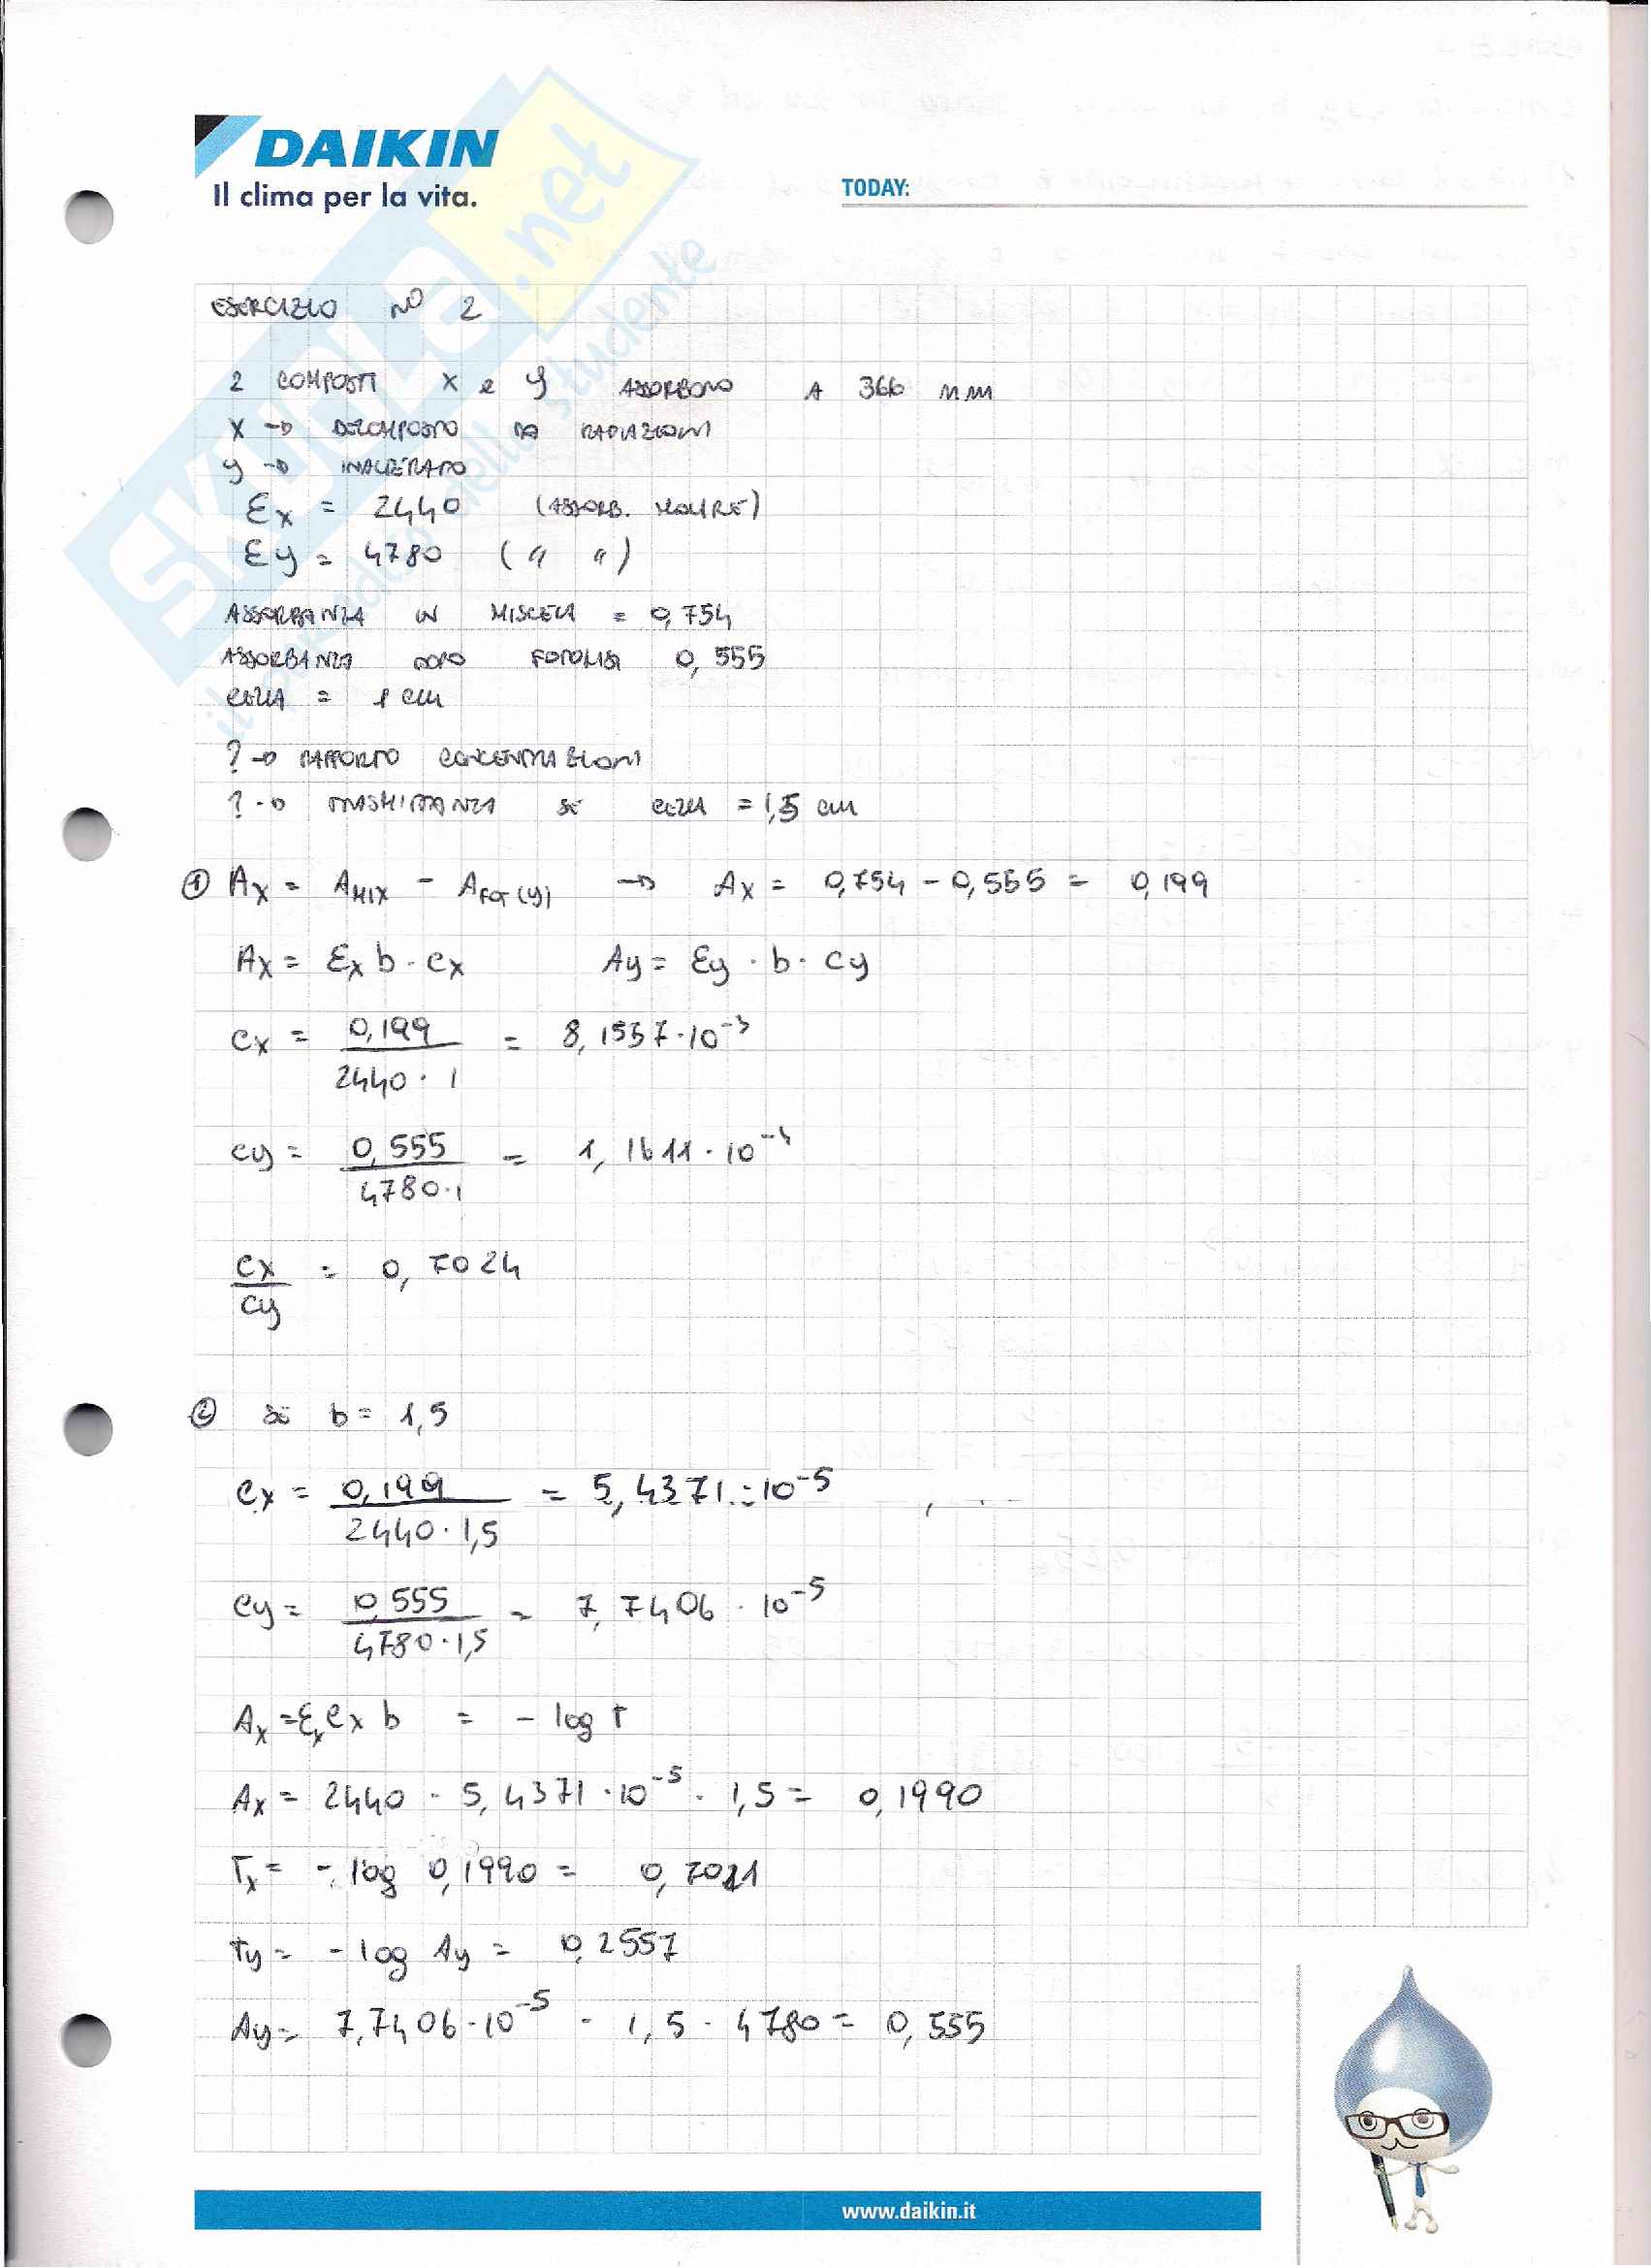 DAIKIN
Il clima per la vita.
TODAY:
SKUOLA.net
il paradiso dello studente
ESERCIZIO N° 2
2 COMPOSTI X e Y ASSORBONO A 366 nm
X → DECOMPOSTO DA RADIAZIONI
Y → INALTERATO
Ex = 2440 (ASSORB. MOLARE)
Ey = 4780 (" ")
ASSORBANZA IN MISCELA = 0,754
ASSORBANZA DOPO FOTOLISI 0,555
CELLA = 1 cm
? → RAPPORTO CONCENTRAZIONI
? → TRASMITTANZA SE CELLA = 1,5 cm
① Ax = AMIX - AFOT(y) → Ax = 0,754 - 0,555 = 0,199
Ax = Ex b · cx Ay = Ey · b · cy
cx = 0,199 / 2440 · 1 = 8,1557·10⁻³
cy = 0,555 / 4780·1 = 1,1611·10⁻⁴
cx / cy = 0,7024
② SE b = 1,5
cx = 0,199 / 2440 · 1,5 = 5,4371·10⁻⁵
cy = 0,555 / 4780·1,5 = 7,7406·10⁻⁵
Ax = Ex cx b = - log T
Ax = 2440 · 5,4371·10⁻⁵ · 1,5 = 0,1990
Tx = - log 0,1990 = 0,7011
Ty = - log Ay = 0,2557
Ay = 7,7406·10⁻⁵ · 1,5 · 4780 = 0,555
www.daikin.it